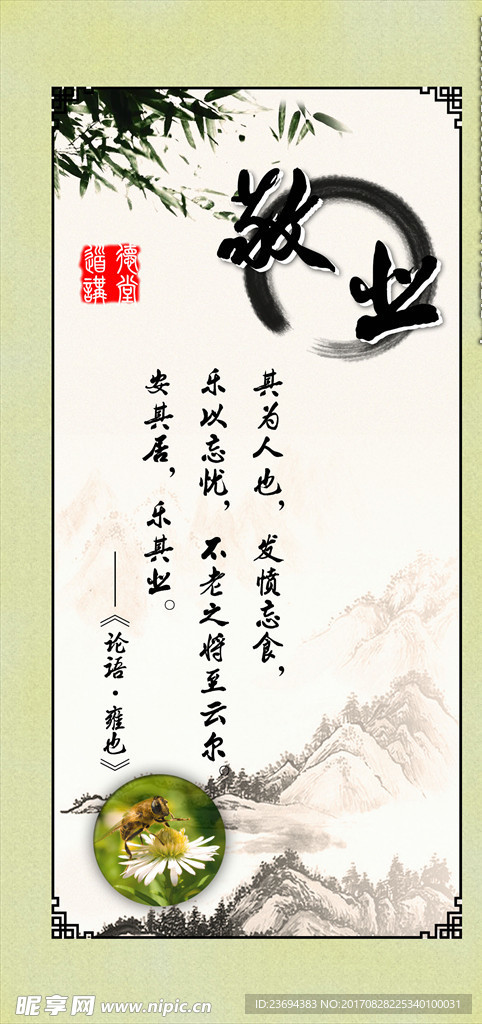 敬业
道德
讲堂
其为人也，发愤忘食，
乐以忘忧，不老之将至云尔。
安其居，乐其业。
——《论语·雍也》
昵享网 www.nipic.cn
ID:23694383 NO:20170828225340100031